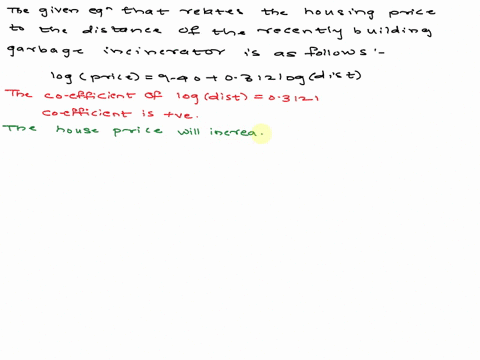 The given eqn that relates the housing price
to the distance of the recently building
garbage incinerator is as follows :-
log(price) = 9.40 + 0.312 log(dist)
The co-efficient of log(dist) = 0.3121
coefficient is +ve.
The house price will increa